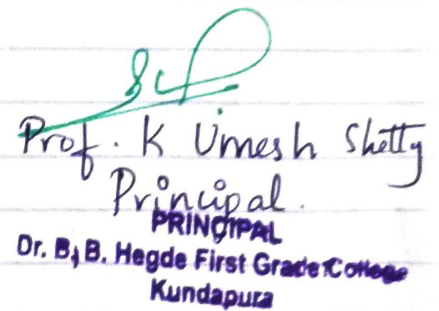 Prof. K Umesh Shetty
Principal.
PRINCIPAL
Dr. B. B. Hegde First Grade College
Kundapura